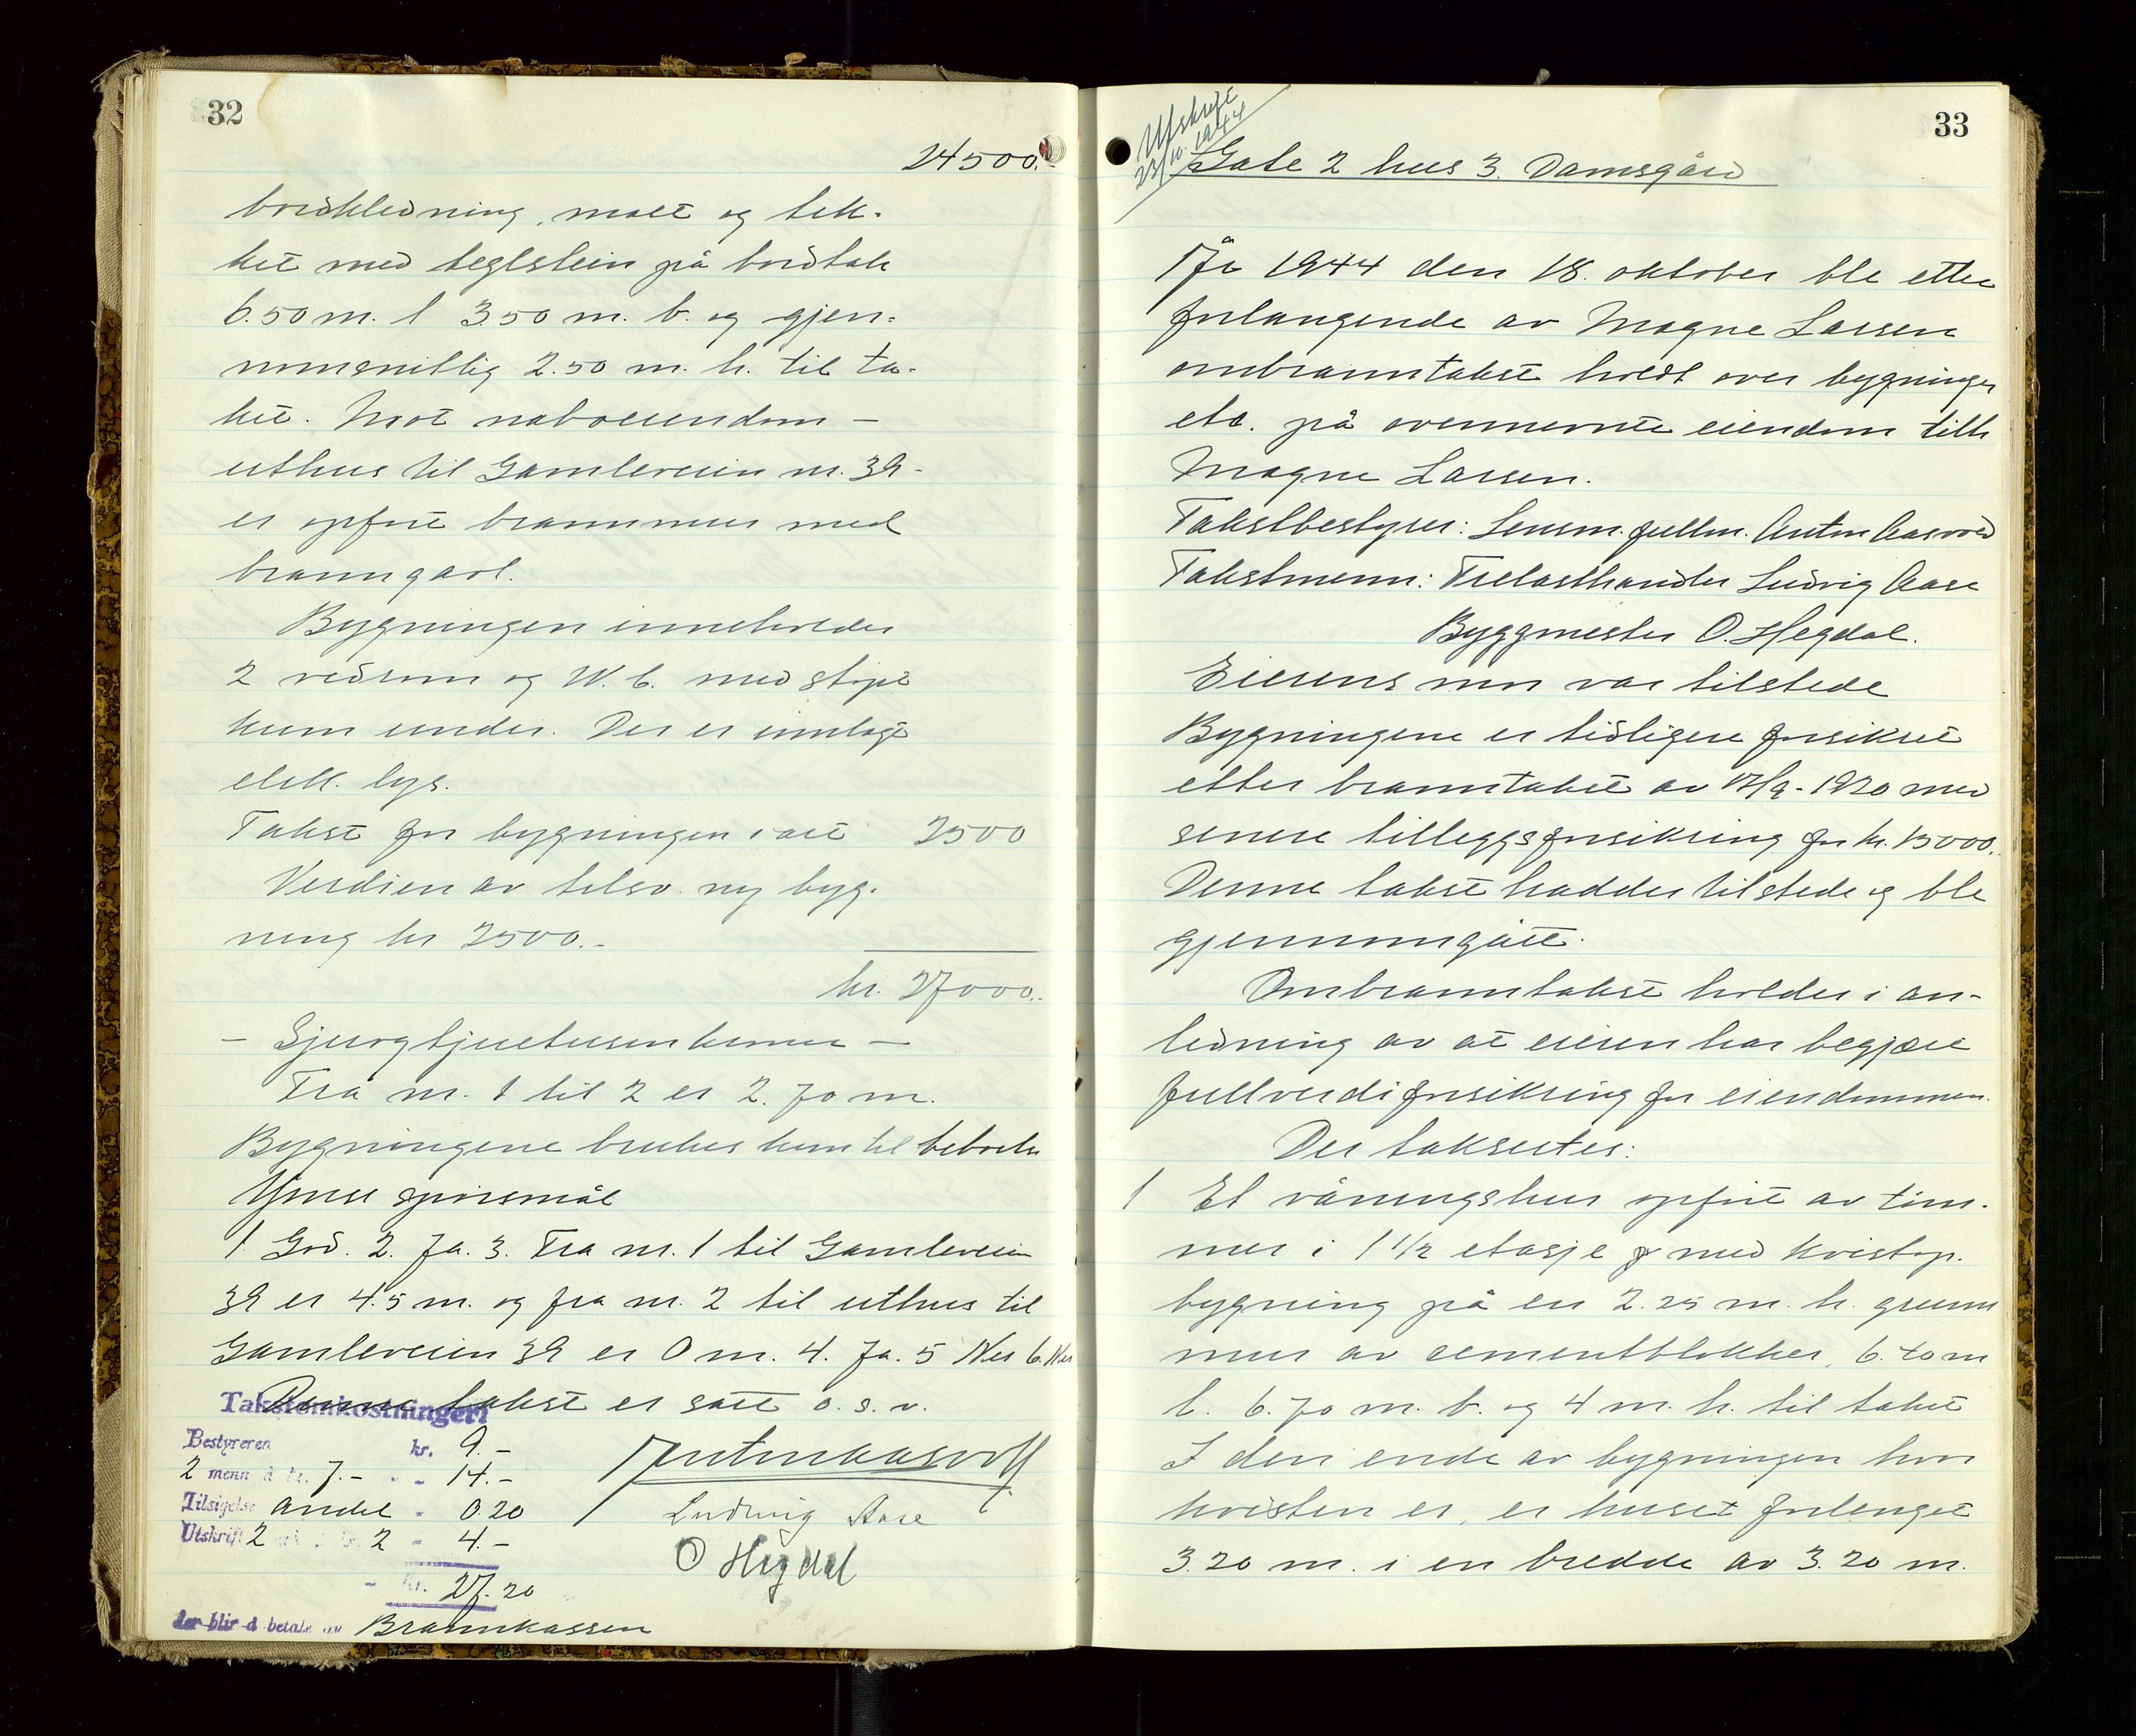 32
24500.-
bordkledning, malt og tek-
ket med teglstein på bordtak
6.50 m. l 3.50 m. b. og gjen-
nomsnittlig 2.50 m. h. til ta-
ket. Mot naboeiendom -
uthus til Gamleveien nr. 39 -
er opført brannmur med
branngavl.
Bygningen inneholder
2 vedrom og W.C. med støpt
kum under. Der er innlagt
elek. lys.
Takst for bygningen i alt 2500
Verdien av tilsv. ny byg-
ning kr 2500.-
kr. 27000.-
- Sjuogtjuetusenkroner -
Fra nr. 1 til 2 er 2.70 m.
Bygningene brukes kun til beboelse
Ymse spørsmål
1 God. 2. Ja. 3. Fra nr. 1 til Gamleveien
39 er 4.5 m. og fra nr. 2 til uthus til
Gamleveien 39 er 0 m. 4. Ja. 5 Nei 6. Nei
Denne takst er satt o.s.v.
Takstomkostninger:
Bestyreren kr. 9.-
2 menn à kr. 7.- - 14.-
Tilsigelse andel - 0.20
Utskrift 2 2 - 4.-
- kr. 27.20
der blir å betale av Brannkassen
Anton Aasvold
Ludvig Aase
O Hegdal
33
Utskrift
23/10. 1944
Gate 2 hus 3. Damsgård
År 1944 den 18. oktober ble etter
forlangende av Magne Larsen
ombranntakst holdt over bygninger
etc. på ovennevnte eiendom tilh
Magne Larsen.
Takstbestyrer: Lensm. fullm. Anton Aasvold
Takstmenn: Trelasthandler Ludvig Aase
Byggmester O. Hegdal.
Eierens mor var tilstede
Bygningene er tidligere forsikret
etter branntakst av 17/9-1920 med
senere tilleggsforsikring for kr. 15000.
Denne takst haddes tilstede og ble
gjennomgått.
Ombranntakst holdes i an-
ledning av at eieren har begjært
fullverdiforsikring for eiendommen.
Der taksertes:
1 Et våningshus opført av tøm-
mer i 1 1/2 etasje med kvistop-
bygning på en 2.25 m. h. grunn
mur av cementblokker, 6.70 m
l. 6.70 m. b. og 4 m. h. til taket
I den ende av bygningen hvor
kvisten er, er huset forlenget
3.20 m. i en bredde av 3.20 m.